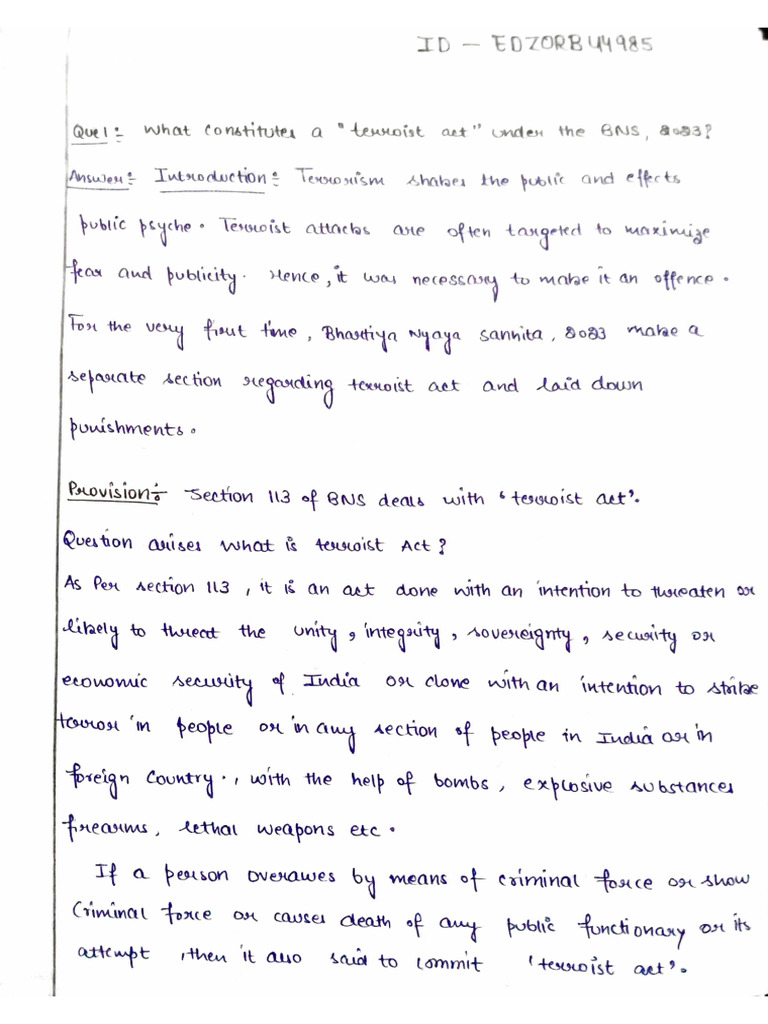 ID - EDZORBU4985
Que1:- What constitutes a "terroist act" under the BNS, 2023?
Answer:- Introduction:- Terrorism shakes the public and effects
public psyche. Terroist attacks are often targeted to maximize
fear and publicity. Hence, it was necessary to make it an offence.
For the very first time, Bhartiya Nyaya Sanhita, 2023 make a
separate section regarding terroist act and laid down
punishments.
Provision:- Section 113 of BNS deals with 'terroist act'.
Question arises what is terroist Act?
As Per section 113, it is an act done with an intention to threaten or
likely to threat the unity, integrity, sovereignty, security or
economic security of India or done with an intention to strike
terror in people or in any section of people in India or in
foreign Country., with the help of bombs, explosive substances
firearms, lethal weapons etc.
If a person overawes by means of criminal force or show
Criminal force or causes death of any public functionary or its
attempt, then it also said to commit 'terroist act'.